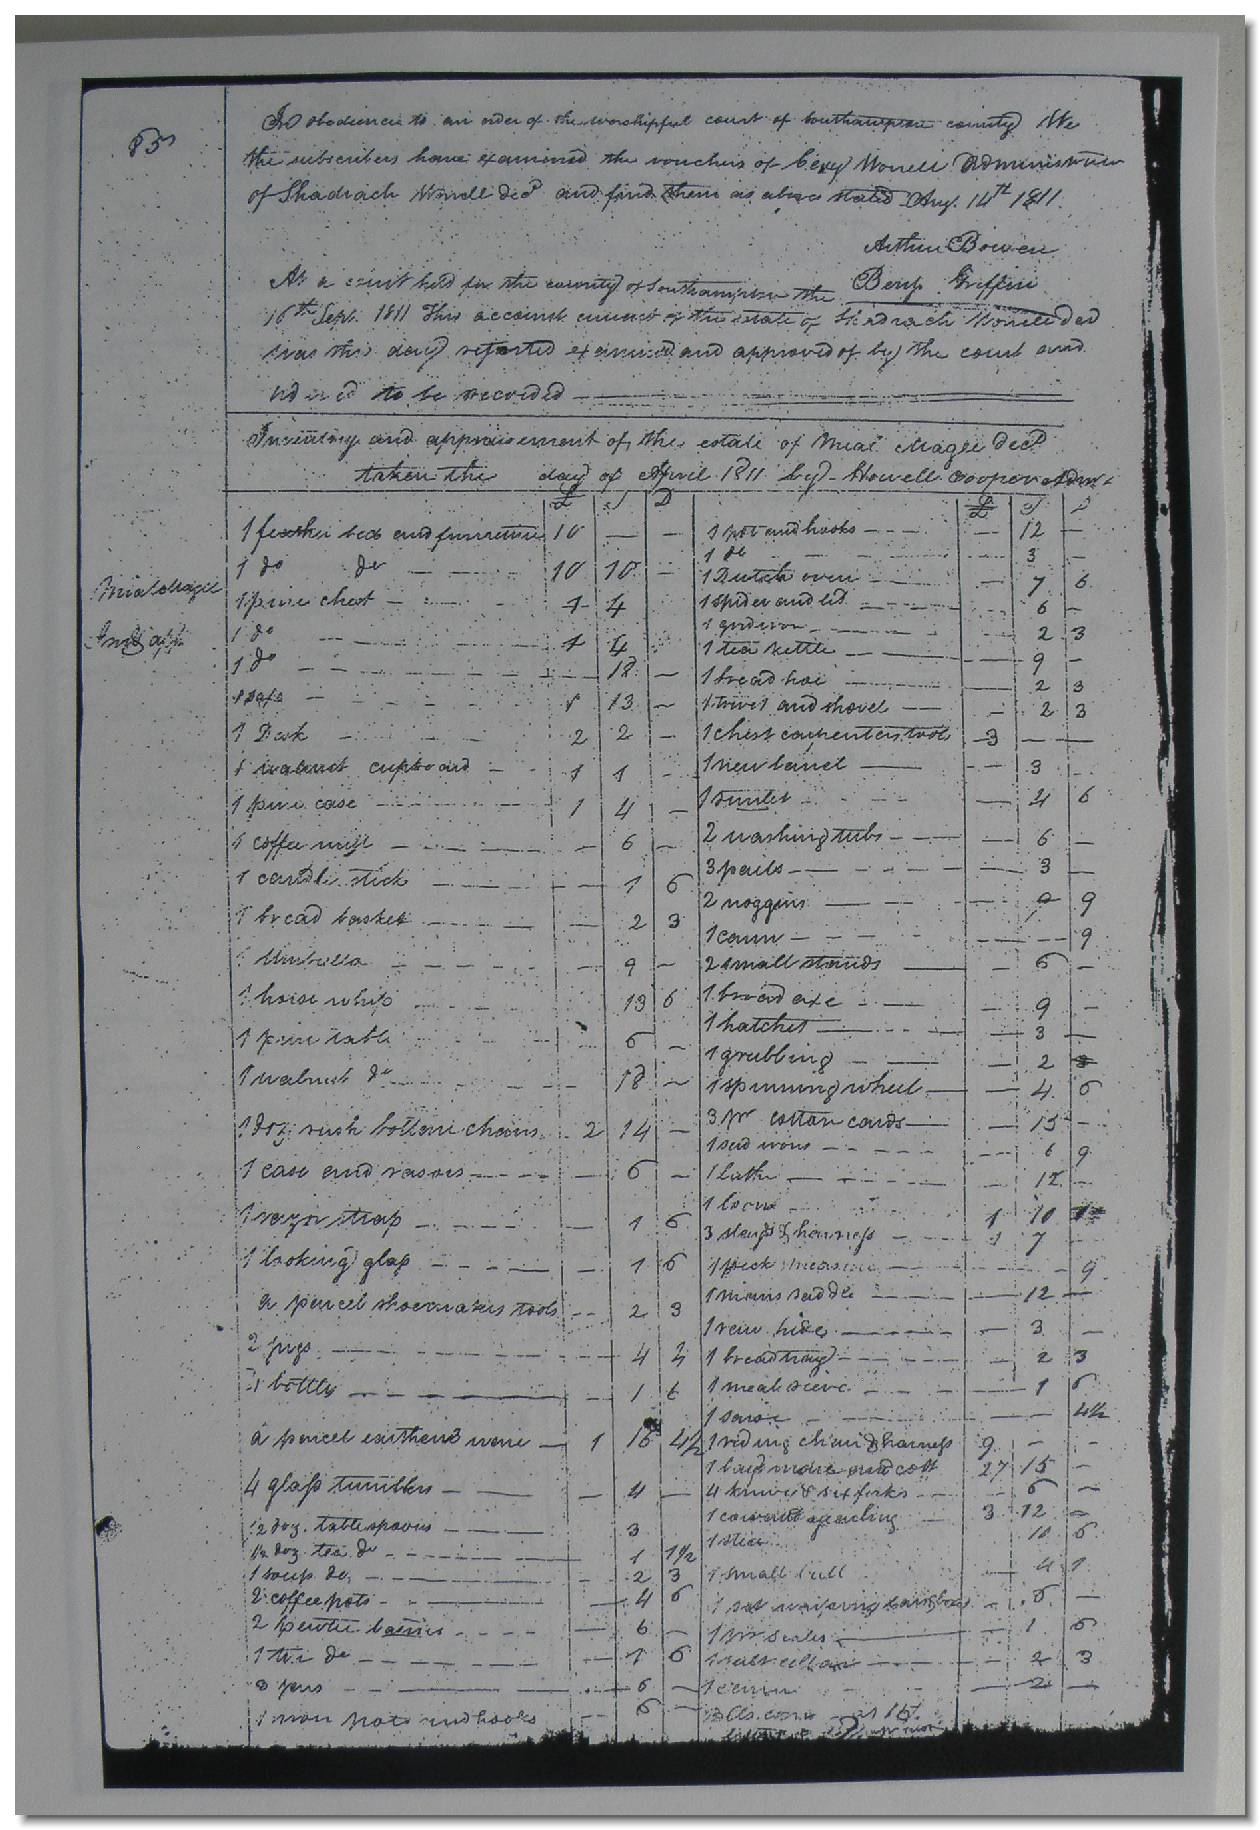 85
In obedience to an order of the worshipful court of Southampton county We
the subscribers have examined the vouchers of Worrell Administrator
of Shadrach Worrell decd and find them as above stated Aug. 14th 1811.
Arthur Bowen
Benj. Griffin
At a court held for the county of Southampton the
16th Sept. 1811 This account current of the estate of Shadrach Worrell decd
was this day returned examined and approved of by the court and
ordered to be recorded
Inventory and appraisement of the estate of Magee decd
taken the day of April 1811 by Howell Cooper Admr
Magee
£ S D
1 feather bed and furniture 10 — —
1 do do 10 10 —
1 pine chest 1 4
1 do 1 4
1 do 18 —
13 —
1 Desk 2 2 —
1 walnut cupboard 1 1 —
1 pine case 1 4 —
1 coffee mill — 6 —
1 candle stick — 1 6
1 bread basket — 2 3
1 Umbrella — 9 —
1 horse whip 13 6
1 pine table 6 —
1 walnut do 18 —
1 doz. rush bottom chairs 2 14 —
1 case and rasors — 6 —
1 razor strap — 1 6
1 looking glass — 1 6
a parcel shoemakers tools — 2 3
2 jugs — 4
bottles — 1 6
a parcel earthen ware 1 16 4½
4 glass tumblers — 4 —
½ doz. table spoons 3
½ doz. tea do 1 1½
1 soup do 2 3
2 coffee pots — 4 6
2 pewter basins — 6 —
1 tin do — 1 6
— 6 —
1 iron pots and hooks — 6 —
£ S D
1 pot and hooks — 12 —
1 do 3 —
1 Dutch oven — 7 6
1 spider and lid 6 —
1 gridiron 2 3
1 tea kettle — 9 —
1 bread hoe — 2 3
1 trivet and shovel — 2 3
1 chest carpenters tools 3 — —
1 new barrel 3
— 4 6
2 washing tubs — 6 —
3 pails — 3 —
2 noggins 9
1 cann — — 9
2 small stands — 6 —
1 broad axe 9 —
1 hatchet — 3 —
1 grubbing — 2 3
1 spinning wheel — 4 6
3 pr cotton cards — 15 —
1 sad irons 6 9
1 lathe — 12 —
1 loom 1 10
3 slays & harness 1 7 —
1 peck measure 9
1 mans saddle 12 —
1 raw hide — 3 —
1 bread tray — 2 3
1 meal sieve — 1 6
— 4½
1 riding chair & harness 9 — —
1 bay mare and colt 27 15 —
4 knives & six forks 6 —
1 cow and yearling 3 12 —
10 6
1 small bull — 4 1
1 set 6 —
1 pr scales — 1 6
1 salt cellar — 2 3
1 2 —